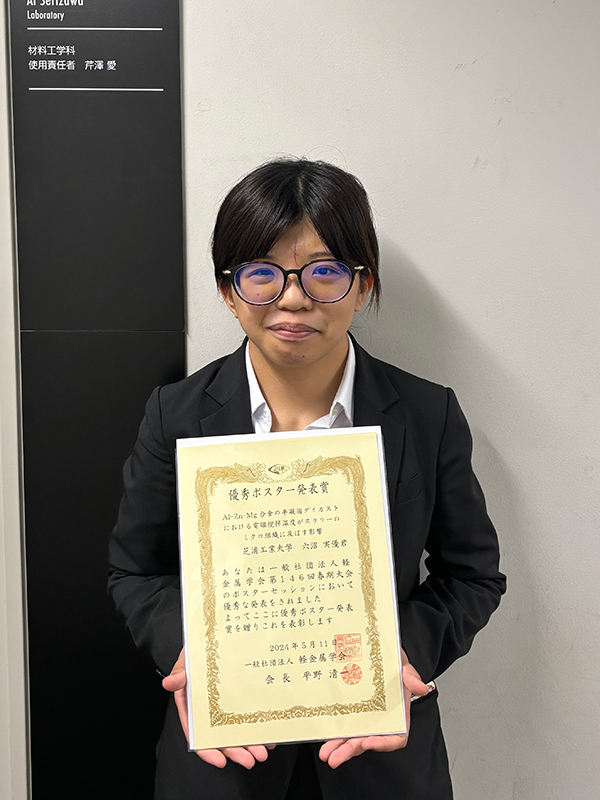 Ai Serizawa
Laboratory
材料工学科
使用責任者 芹澤 愛
優秀ポスター発表賞
Al-Zn-Mg合金の半凝固ダイカスト
における電磁撹拌温度がスラリーの
ミクロ組織に及ぼす影響
芝浦工業大学 六沼 実優君
あなたは一般社団法人軽
金属学会第146回春期大会
のポスターセッションにおいて
優秀な発表をされました
よってここに優秀ポスター発表
賞を贈りこれを表彰します
2024年5月11日
一般社団法人 軽金属学会
会長 平野 清一